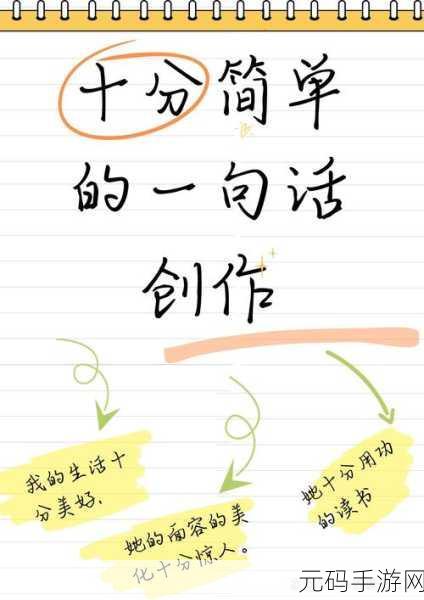 十分简单
的一句话
创作
我的生活十
分美好.
她的面容的美
化十分惊人。
她十分用功
的读书
元码手游网